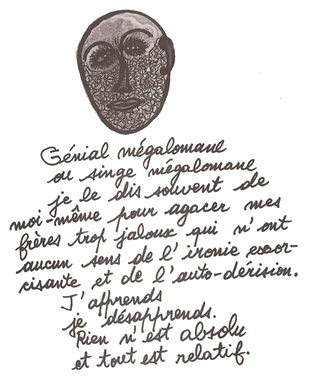 Génial mégalomane
ou singe mégalomane
je le dis souvent de
moi-même pour agacer mes
frères trop jaloux qui n'ont
aucun sens de l'ironie exor-
cisante et de l'auto-dérision.
J'apprends
je désapprends.
Rien n'est absolu
et tout est relatif.